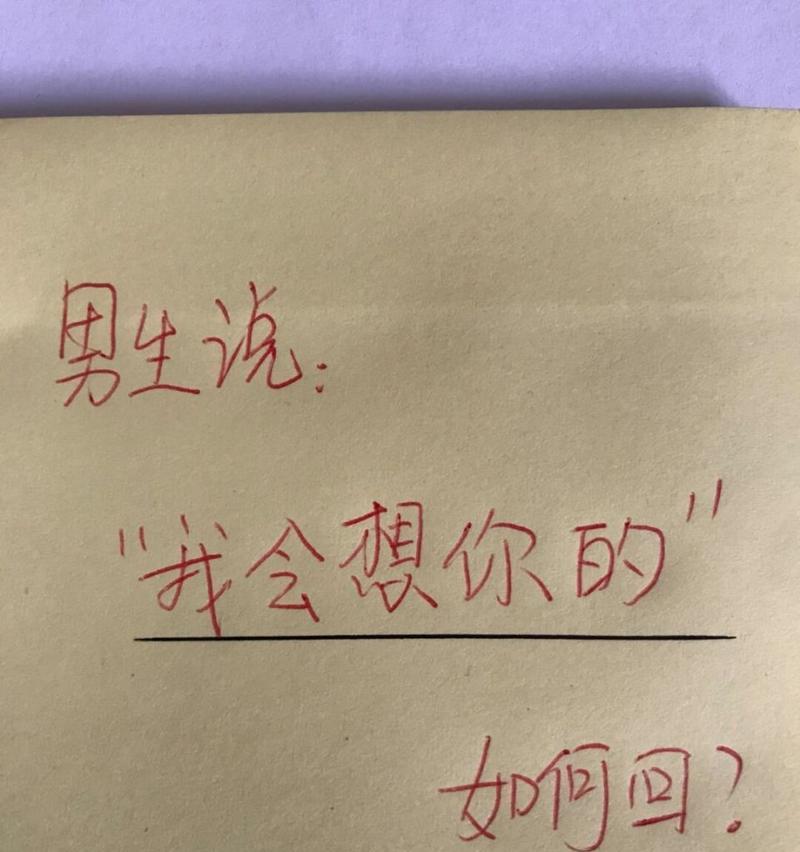 男生说：
“我会想你的”
如何回？